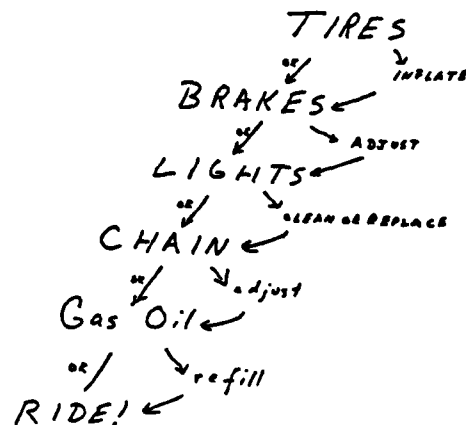 TIRES
OK
INFLATE
BRAKES
OK
ADJUST
LIGHTS
OK
CLEAN OR REPLACE
CHAIN
OK
adjust
Gas Oil
OK
refill
RIDE!